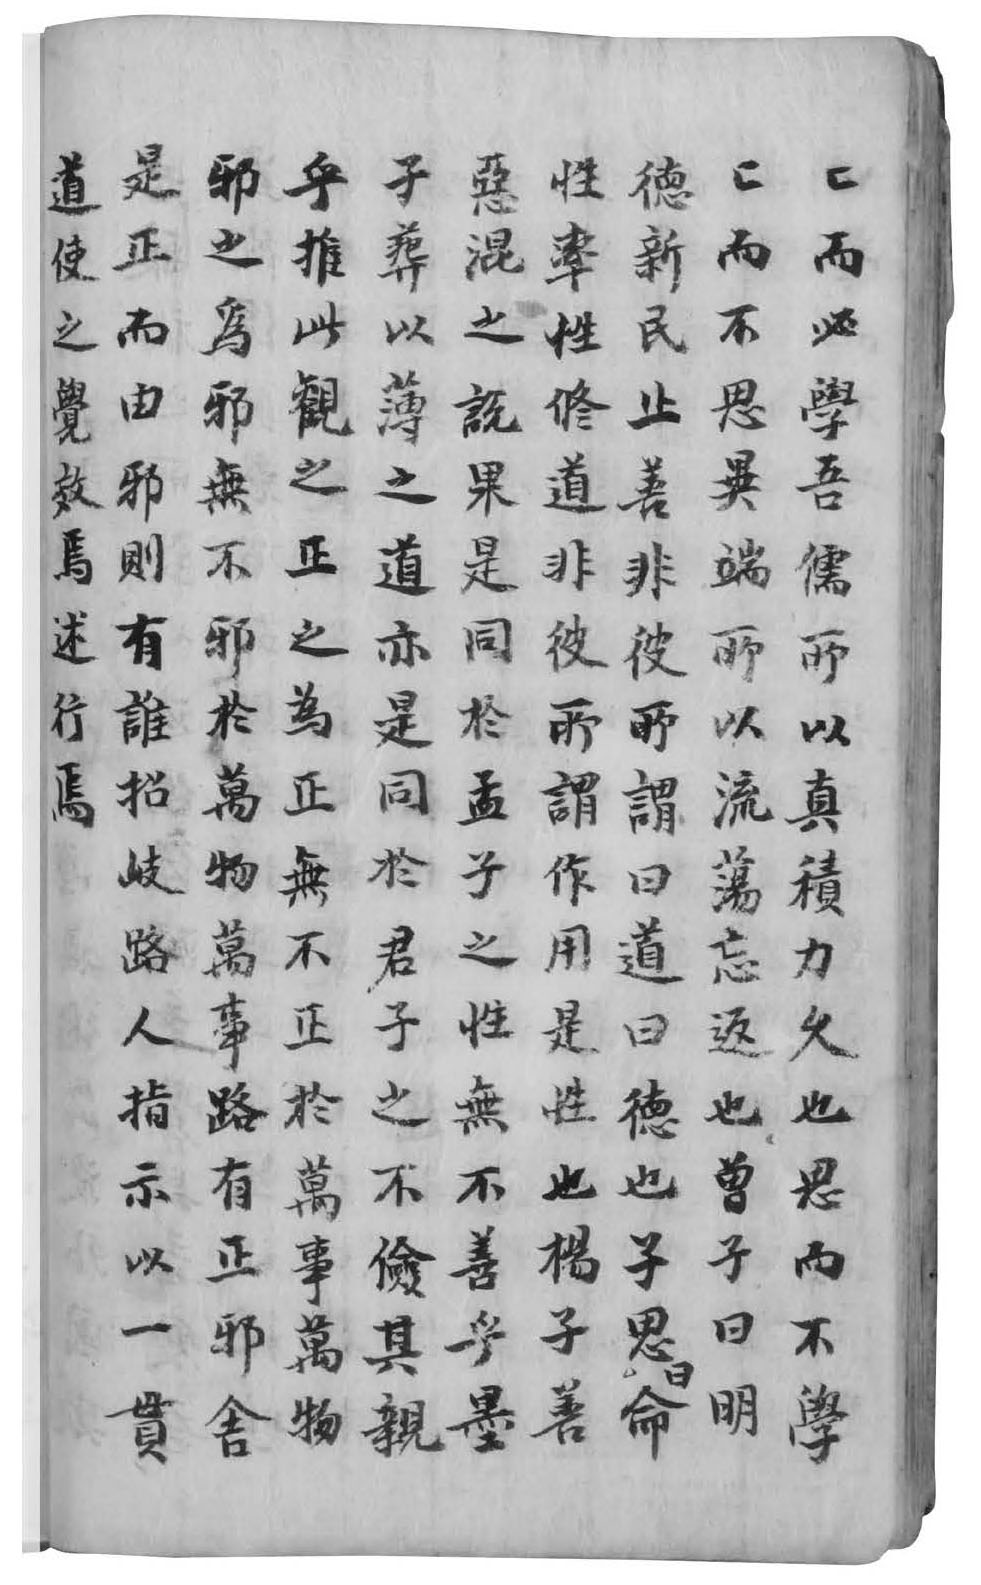 匕而必學吾儒所以真積力久也思而不學
匕而不思異端所以流蕩忘返也曾子曰明
德新民止善非彼所謂曰道曰德也子思曰命
性率性修道非彼所謂作用是性也楊子善
惡混之說果是同於孟子之性無不善乎墨
子葬以薄之道亦是同於君子之不儉其親
乎推此觀之正之為正無不正於萬事萬物
邪之爲邪無不邪於萬物萬事路有正邪舍
是正而由邪則有誰招歧路人指示以一貫
道使之覺效焉述行焉